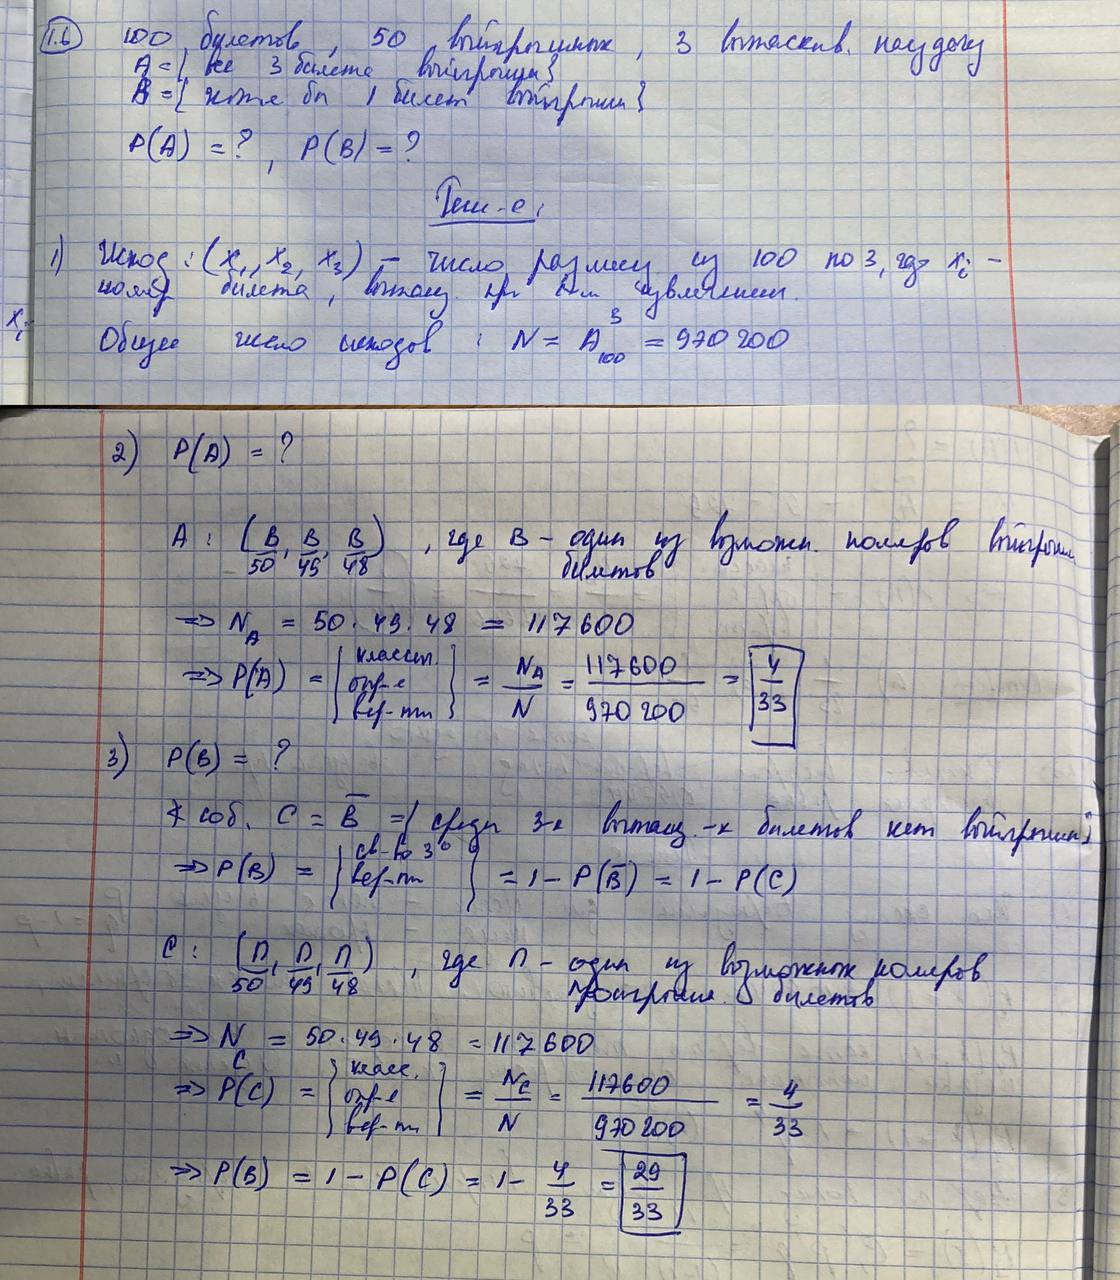 1.6 100 билетов, 50 выигрышных, 3 вытаскив. наудачу
A = { все 3 билета выигрышн }
B = { хотя бы 1 билет выигрышн }
P(A) = ?, P(B) = ?
Реш-е:
1) Исход: (x₁, x₂, x₃) – число размещ. из 100 по 3, где xᵢ –
номер билета, вытащ. при i-м извлечении.
xᵢ
Общее число исходов: N = A³₁₀₀ = 970 200
2) P(A) = ?
A: (B/50, B/49, B/48), где B – один из возможн. номеров выигрышн
билетов
=> N_A = 50·49·48 = 117600
=> P(A) = { классич. опр-е вер-ти } = N_A/N = 117600/970 200 = 4/33
3) P(B) = ?
соб. C = B̅ = { среди 3-х вытащ-х билетов нет выигрышн }
=> P(B) = { св-во 3° вер-ти } = 1 – P(B̅) = 1 – P(C)
C: (П/50, П/49, П/48), где П – один из возможных номеров
проигрышн. билетов
=> N_C = 50·49·48 = 117600
=> P(C) = { класс. опр-е вер-ти } = N_C/N = 117600/970 200 = 4/33
=> P(B) = 1 – P(C) = 1 – 4/33 = 29/33